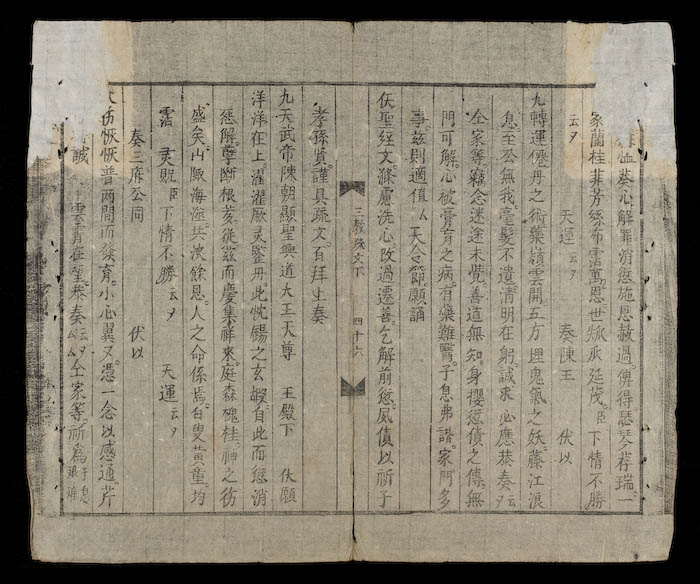 恤葵心解罪消愆施恩赦過俾得瑟琴荐瑞一
象蘭桂菲芳絲布霈萬恩世狀永延茂臣下情不勝
云々
天運云々 奏陳王 伏以
九轉運僊丹之術藥嶺雲開五方埋鬼氣之妖藤江浪
息至公無我毫髮不遺清明在躬誠求必應恭奏云々
仝家等竊念迷途未覺善道無知身攖愆債之傳無
門可解心被膏肓之病有藥難醫子息弗諧家門多
事茲則適值厶天令節願誦
仸聖经文滌慮洗心改過遷善乞解前愆夙債以祈子
三教疏文下 四十六
孝孫貲謹具疏文百拜上奏
九天武帝陳朝顯聖興道大王天尊 王殿下 伏願
洋洋在上濯濯厥灵鑒丹此忱錫之玄嘏自此而愆消
怨解孽断根亥從茲而慶集祥來庭森槐桂神之彷
盛矣山陬海澨共浹餘恩人之命係焉白叟黄童均
霑灵貺臣下情不勝云々 天運云々
奏三府公同 伏以
恢恢普两間而發育小心翼又憑一念以感通芹
誠 雲霄在望恭奏云々厶仝家等祈爲子息艱难